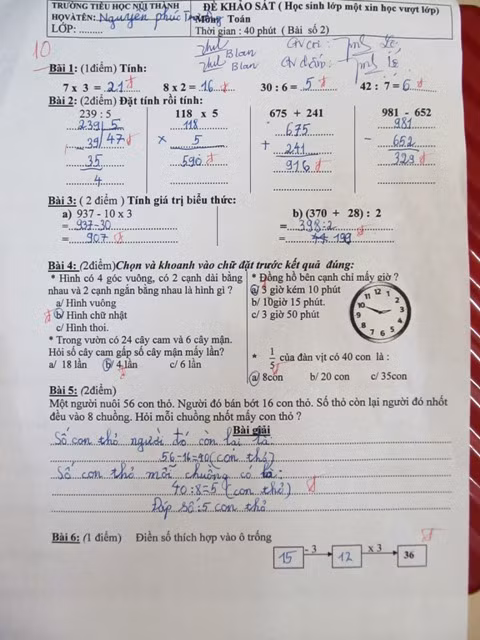 TRƯỜNG TIỂU HỌC NỘI THÀNH ĐỀ KHẢO SÁT ( Học sinh lớp một xin học vượt lớp)
HỌ VÀ TÊN: Nguyễn phúc Môn: Toán
LỚP: Thời gian : 40 phút ( Bài số 2)
10
Bài 1: (1điểm) Tính:
7 x 3 = 21 8 x 2 = 16 30 : 6 = 5 42 : 7 = 6
Bài 2: (2điểm) Đặt tính rồi tính:
239 : 5 118 x 5 675 + 241 981 - 652
239 5 118 675 981
39 47 x 5 + 241 - 652
35 590 916 329
4
Bài 3: ( 2 điểm ) Tính giá trị biểu thức:
a) 937 - 10 x 3 b) (370 + 28) : 2
= 937-30 = 398:2
= 907 = 199
Bài 4: (2điểm)Chọn và khoanh vào chữ đặt trước kết quả đúng:
* Hình có 4 góc vuông, có 2 cạnh dài bằng nhau và 2 cạnh ngắn bằng nhau là hình gì ?
a/ Hình vuông
b/ Hình chữ nhật
c/ Hình thoi.
* Trong vườn có 24 cây cam và 6 cây mận.
Hỏi số cây cam gấp số cây mận mấy lần?
a/ 18 lần b/ 4 lần c/ 6 lần
* Đồng hồ bên cạnh chỉ mấy giờ ?
a/ 3 giờ kém 10 phút
b/ 10giờ 15 phút.
c/ 3 giờ 50 phút
12 1 2 3 4 5 6 7 8 9 10 11
* 1/5 của đàn vịt có 40 con là :
a/ 8con b/ 20 con c/ 35con
Bài 5: (2điểm)
Một người nuôi 56 con thỏ. Người đó bán bớt 16 con thỏ. Số thỏ còn lại người đó nhốt
đều vào 8 chuồng. Hỏi mỗi chuồng nhốt mấy con thỏ ?
Bài giải
Số con thỏ người đó còn lại là:
56-16=40(con thỏ)
Số con thỏ mỗi chuồng có là:
40:8=5 (con thỏ)
Đáp số:5 con thỏ
Bài 6: (1 điểm) Điền số thích hợp vào ô trống
15 - 3 12 x 3 36